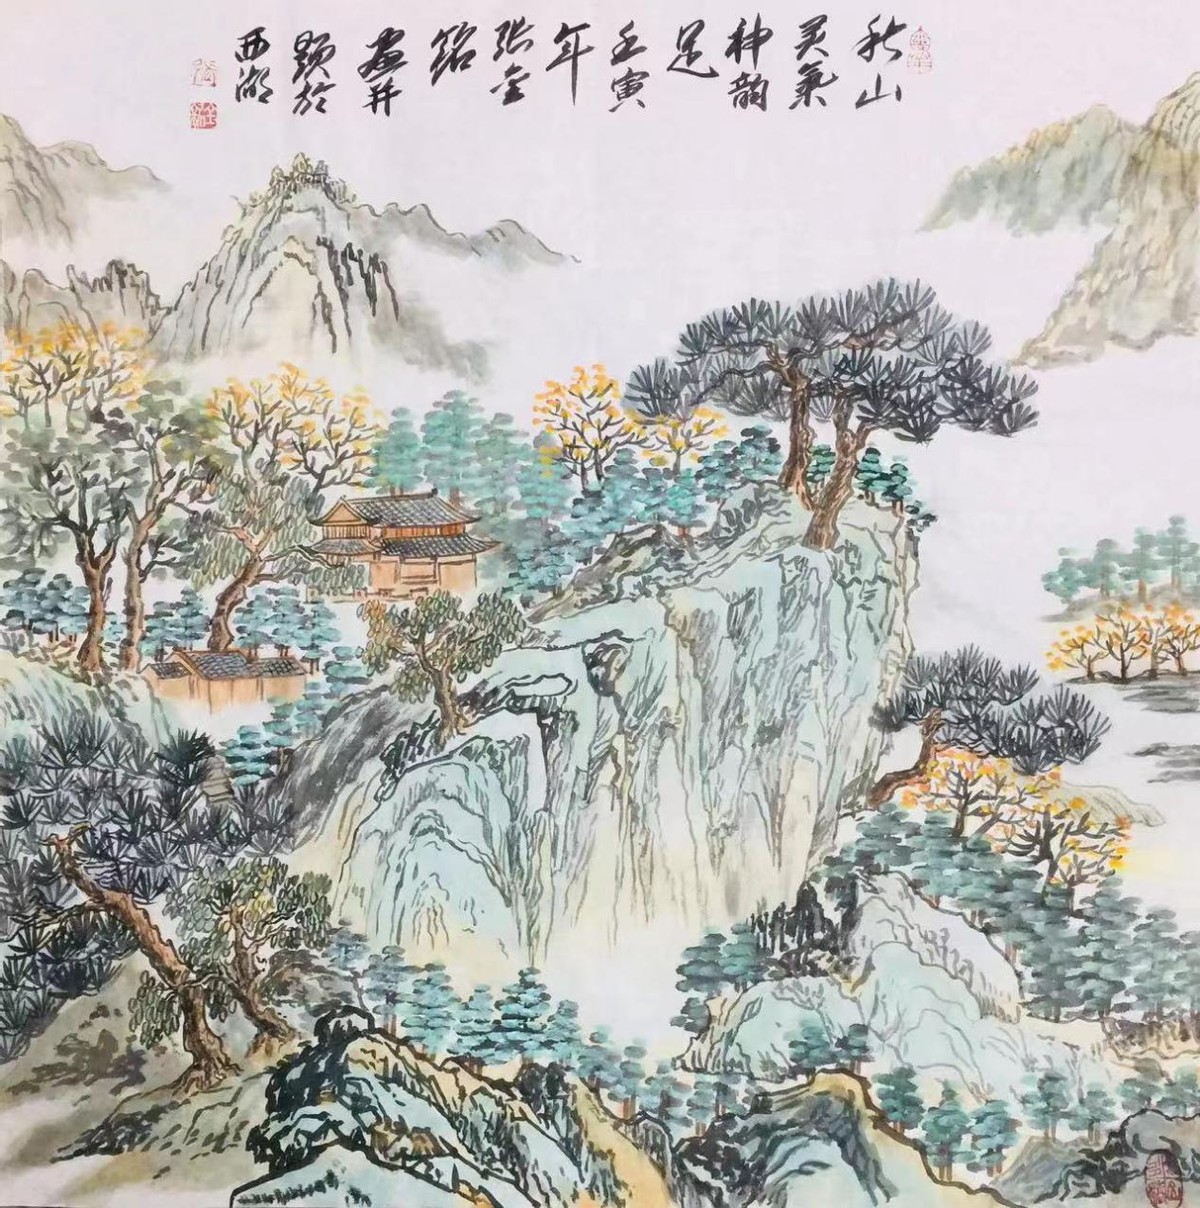 秋山
灵氣
神韵
足
壬寅
年
张金
铭
画并
题於
西湖